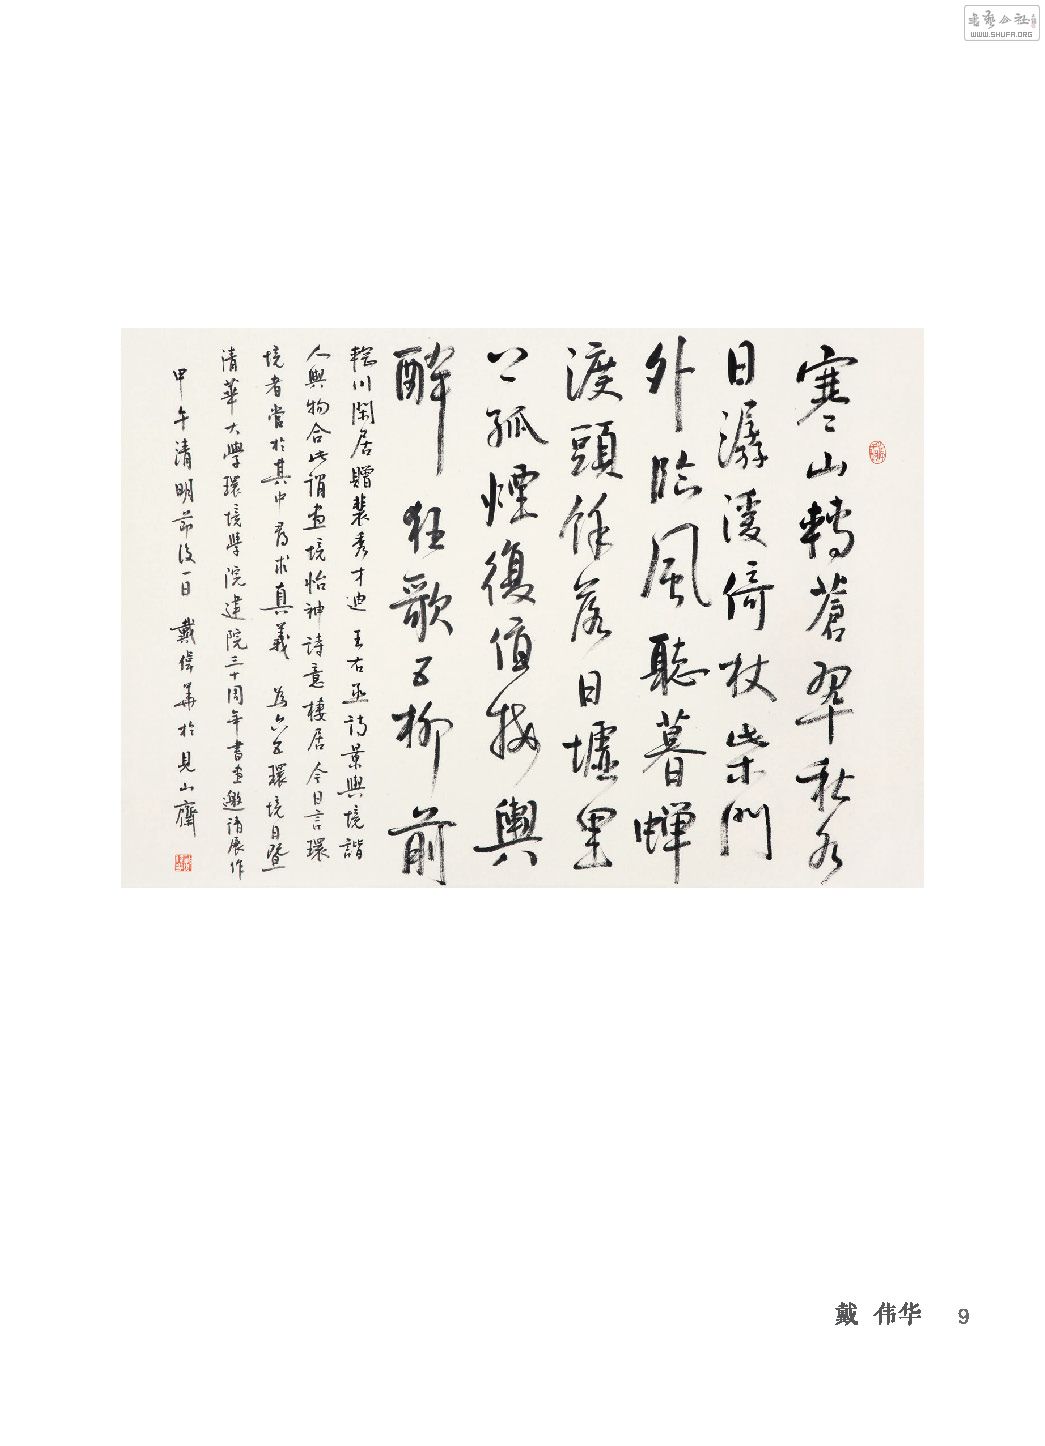 書藝公社
WWW.SHUFA.ORG
寒山轉蒼翠秋水
日潺湲倚杖柴門
外臨風聽暮蟬
渡頭餘落日墟里
上孤煙復值接輿
醉狂歌五柳前
輞川閑居贈裴秀才迪 王右丞詩景與境諧
人與物合此謂畫境怡神詩意棲居今日言環
境者當於其中尋求真義 為六五環境日暨
清華大學環境學院建院三十周年書畫邀請展作
甲午清明節後一日 戴偉華於見山齋
戴 伟华 9